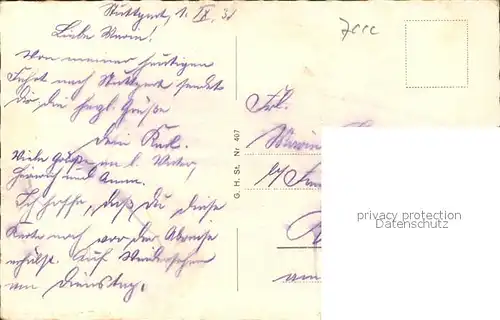 Stuttgart, 1. IX. 31
Liebe Marie!
Von meiner heutigen
Fahrt nach Stuttgart sendet
dir die herzl. Grüße
Dein Karl.
Viele Grüße an l. Vater,
Heinrich und Anna.
Ich hoffe, daß Du diese
Karte noch vor der Abreise
erhälst. Auf Wiedersehen
am Dienstag.
G. H. St. Nr 407
Frl.
Marie
am
privacy protection
Datenschutz